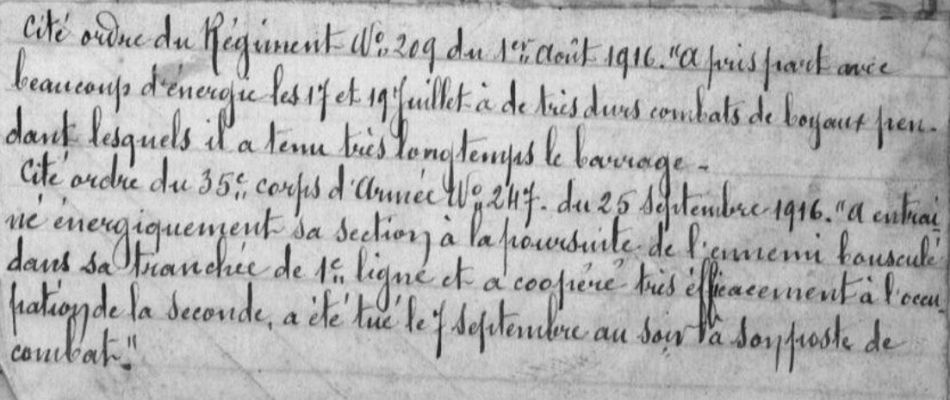 Cité ordre du Régiment No. 209 du 1er août 1916. "A pris part avec
beaucoup d'énergie les 17 et 19 Juillet à de très durs combats de boyaux pen-
dant lesquels il a tenu très longtemps le barrage.
Cité ordre du 35e corps d'Armée No. 247. du 25 Septembre 1916. "A entraî
né énergiquement sa section à la poursuite de l'ennemi bousculé
dans sa tranchée de 1e ligne et a coopéré très éfficacement à l'occu
pation de la seconde, a été tué le 7 septembre au soir à son poste de
combat."